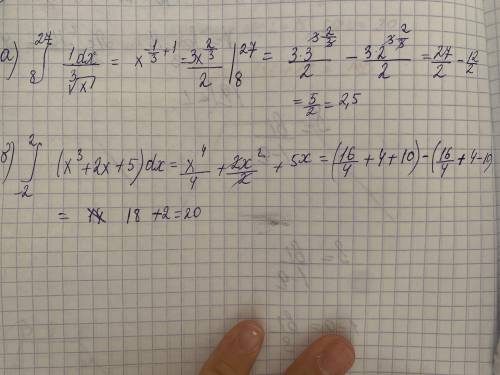 а) ∫₈²⁷ 1dx/∛x = x^(-1/3+1) = 3x^(2/3)/2 |₈²⁷ = 3·3^(3·2/3)/2 - 3·2^(3·2/3)/2 = 27/2 - 12/2
= 5/2 = 2,5
б) ∫₋₂² (x³+2x+5)dx = x⁴/4 + 2x²/2 + 5x = (16/4+4+10)-(16/4+4-10)
= 18+2=20